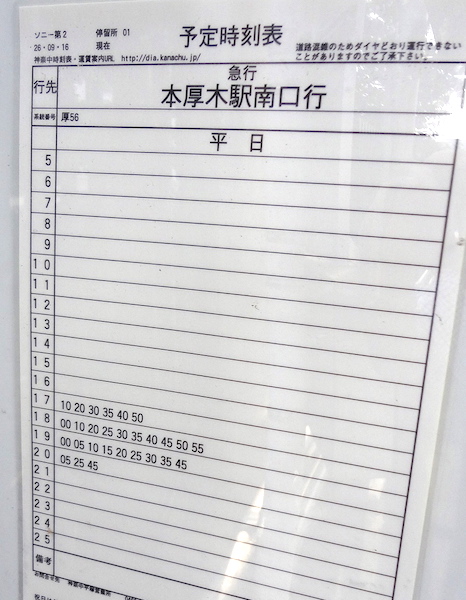 ソニー第2 停留所 01 予定時刻表
26・09・16 現在 道路混雑のためダイヤどおり運行できない
神奈中時刻表・運賃案内URL http://dia.kanachu.jp/ ことがありますのでご了承下さい。
行先 急行
本厚木駅南口行
系統番号 厚56
平 日
5
6
7
8
9
10
11
12
13
14
15
16
17 10 20 30 35 40 50
18 00 10 20 25 30 35 40 45 50 55
19 00 05 10 15 20 25 30 35 45
20 05 25 45
21
22
23
24
25
備考